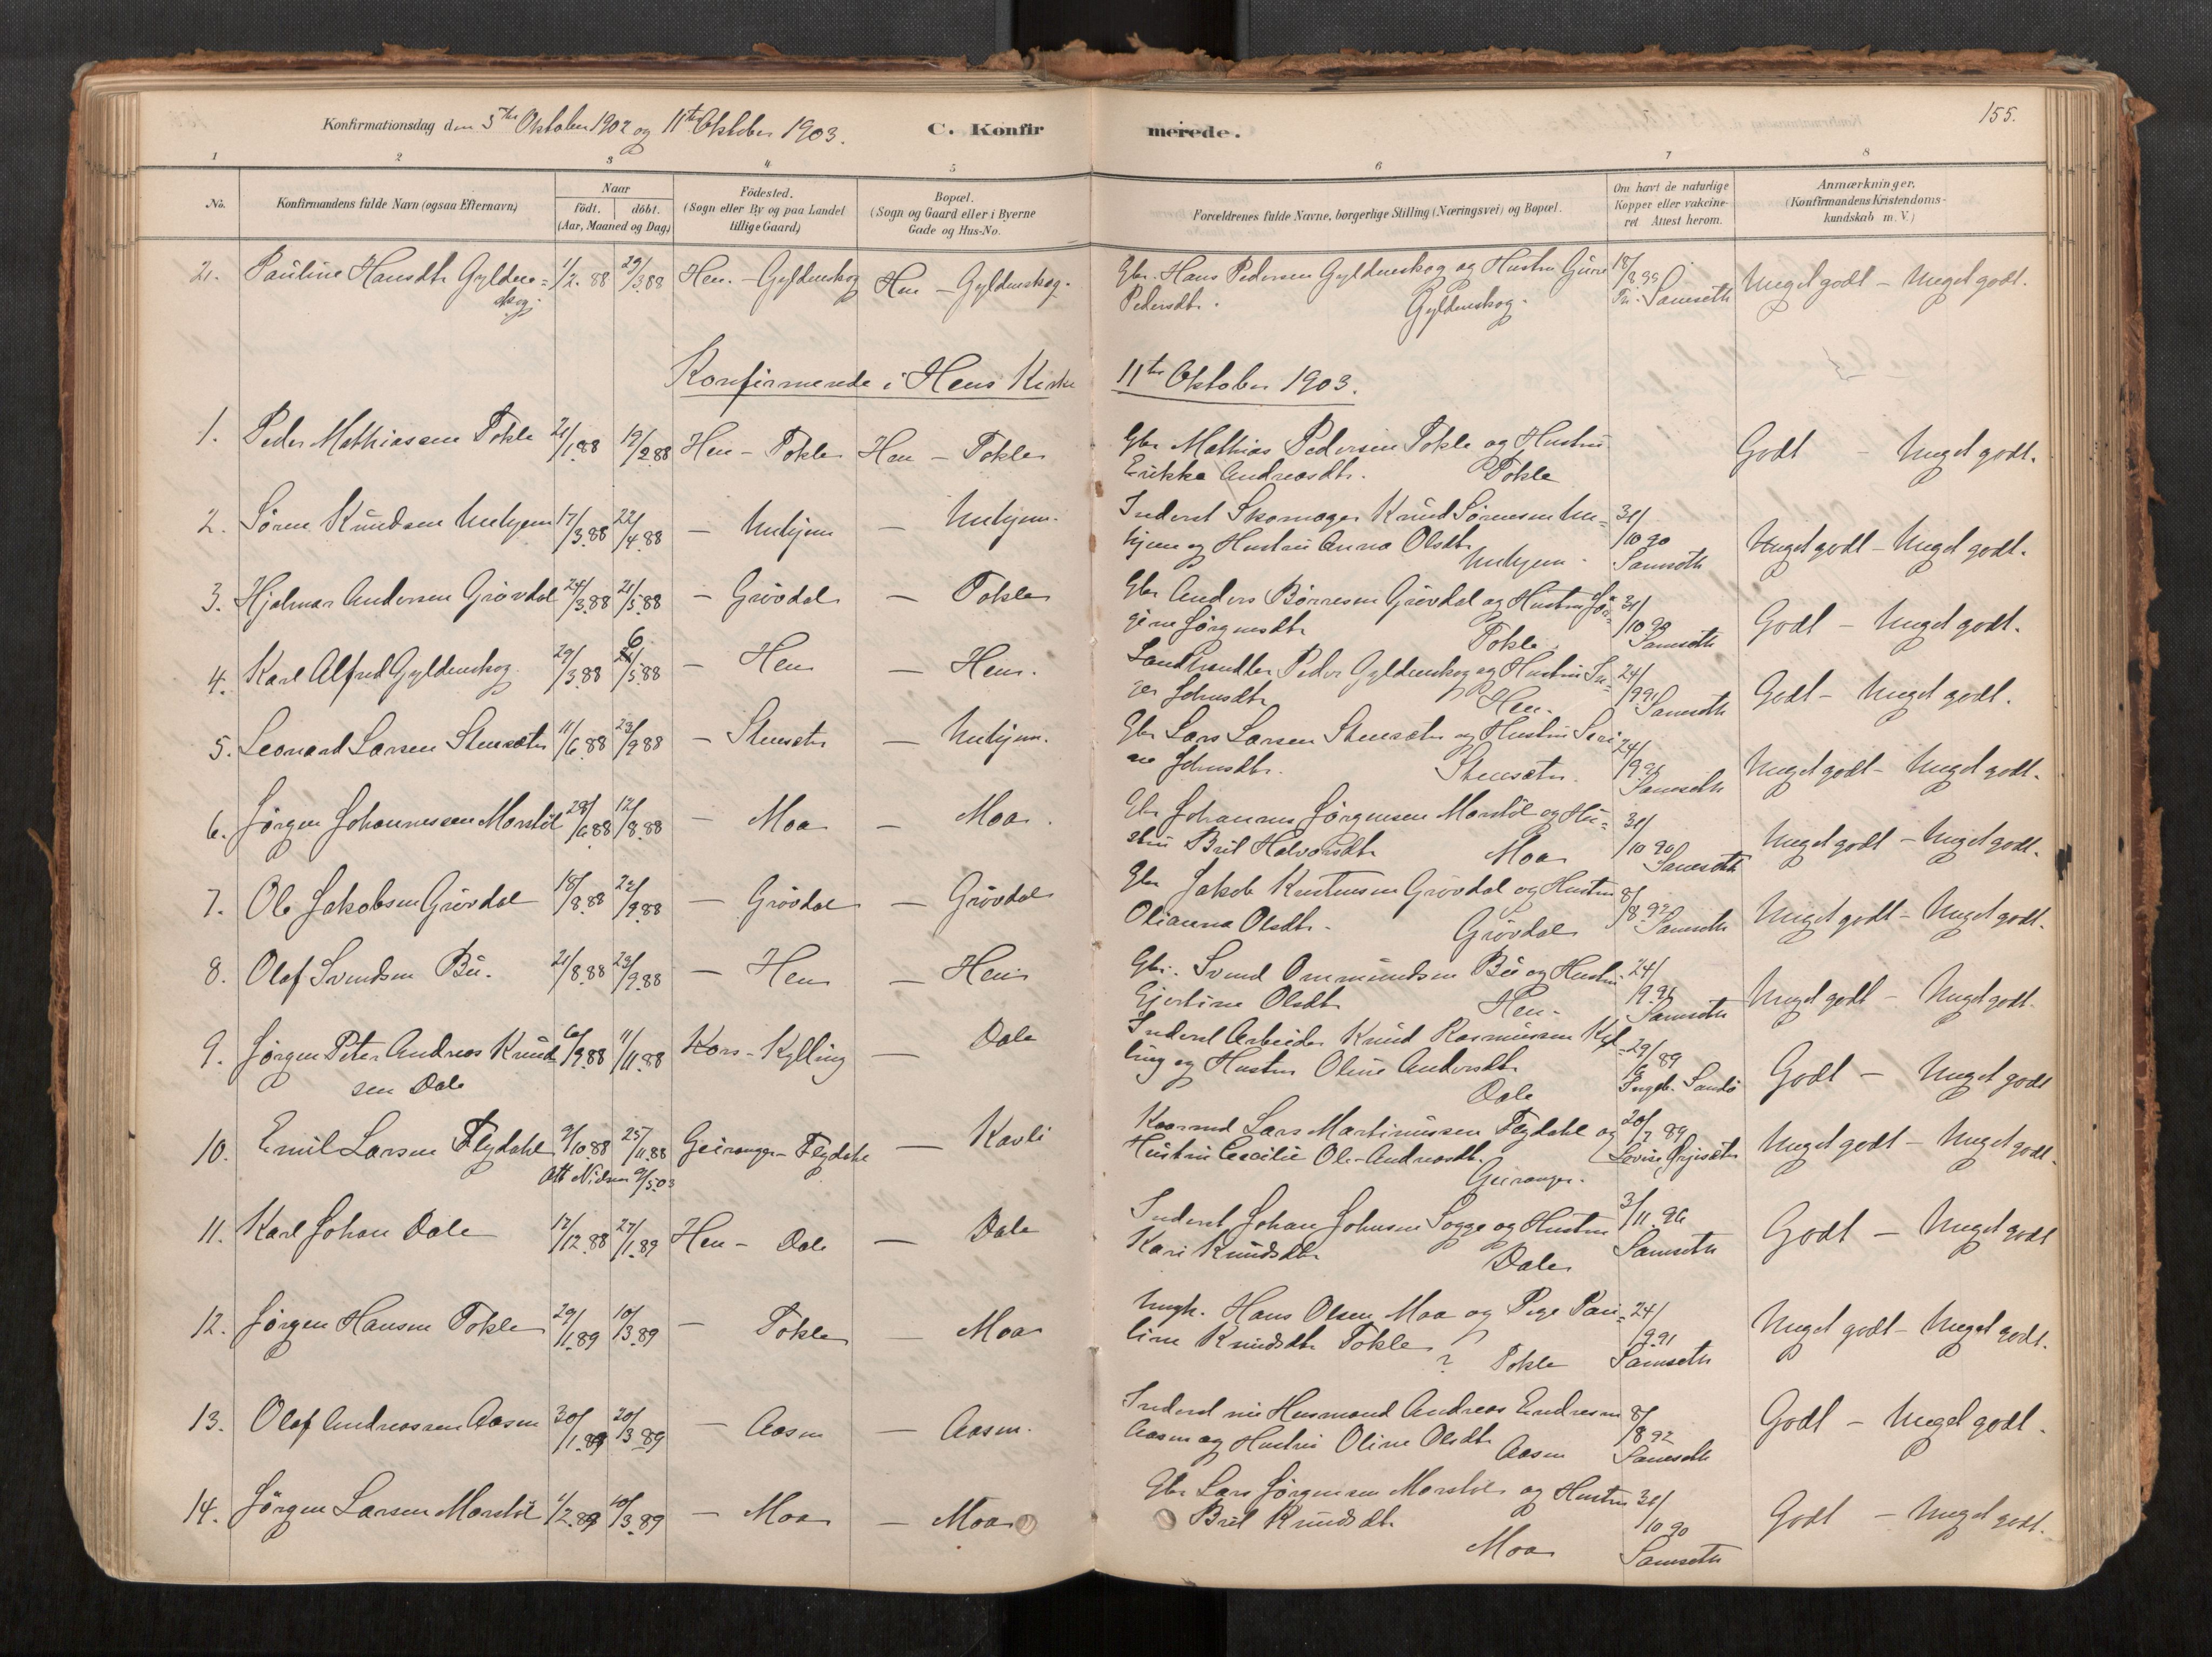 Konfirmationsdag den 5te Oktober 1902 og 11te Oktober 1903.
C. Konfirmerede.
155.
1 2 3 4 5 6 7 8
No.
Konfirmandens fulde Navn (ogsaa Efternavn)
Naar
födt. döbt.
(Aar, Maaned og Dag)
Födested.
(Sogn eller By og paa Landet
tillige Gaard)
Bopæl.
(Sogn og Gaard eller i Byerne
Gade og Hus-No.
Forældrenes fulde Navne, borgerlige Stilling (Næringsvei) og Bopæl.
Om havt de naturlige
Kopper eller vakcine-
ret Attest herom.
Anmærkninger.
(Konfirmandens Kristendoms-
kundskab m. V.)
2. Pauline Hansdtr Gylden= 1/2.88 29/3.88 Hen. - Gyldenskog Hen - Gyldenskog. Gbr. Hans Pedersen Gyldenskog og Hustru Guri 18/8 99 Meget godt - Meget godt.
skog. Pedersdtr. Gyldenskog. Samseth
Konfirmerede i Hens Kirke 11te Oktober 1903.
1. Peder Mathiassen Tokle 21/1.88 19/2.88 Hen - Tokle Hen - Tokle Gbr Mathias Pedersen Tokle og Hustru Godt - Meget godt.
Erikka Andreasdtr. Tokle
2. Sören Knudsen Unhjem 17/3.88 22/4.88 - Unhjem - Unhjem. Inderst Skomager Knud Sörensen Un= 31/10 90 Meget godt - Meget godt.
hjem og Hustru Anna Olsdtr Unhjem. Samseth
3. Hjalmar Andersen Grövdal 24/3.88 21/5.88 - Grövdal - Tokle Gbr Anders Börresen Grövdal og Hustru Jör= 31/10 90 Godt - Meget godt.
gine Jörgensdtr Tokle. Samseth
4. Karl Alfred Gyldenskog 29/3.88 6/5.88 - Hen - Hen. Landhandler Peder Gyldenskog og Hustru In= 24/9 91 Godt - Meget godt.
ger Johnsdtr Hen. Samseth
5. Leonard Larsen Stensæter 11/6.88 23/9.88 - Stensæter - Unhjem. Gbr Lars Larsen Stensæter og Hustru Seri 24/9.91 Meget godt - Meget godt.
ne Johnsdtr. Stensæter. Samseth
6. Jörgen Johannessen Morstöl 28/6.88 12/8.88 - Moa - Moa. Gbr Johannes Jörgensen Morstöl og Hu= 31/10 90 Meget godt - Meget godt.
stru Brit Halvorsdtr Moa Samseth
7. Ole Jakobsen Grövdal 18/8.88 23/9.88 - Grövdal - Grövdal Gbr Jakob Knutsen Grövdal og Hustru 8/8.92 Meget godt - Meget godt.
Olianna Olsdtr. Grövdal Samseth
8. Olaf Svendsen Bu. 21/8.88 23/9.88 - Hen - Hen Gbr. Svend Ommundsen Bu og Hustru 24/9.91 Meget godt - Meget godt.
Gjertine Olsdtr Hen. Samseth
9. Jörgen Peter Andreas Knud 6/9.88 11/11.88 Kors - Kylling - Dale Inderst Arbeider Knud Rasmussen Kyl= 29/6 89 Godt - Meget godt
sen Dale ling og Hustru Oline Andersdtr Dale Ingeb. Sandö
10. Emil Larsen Flydahl 9/10.88 25/11.88 Geiranger - Flydahl - Kavli Kaarmd Lars Martinussen Flydahl og 20/7 89 Meget godt - Meget godt.
Att 9/5.03 Hustru Cecilie Ole-Andreasdtr. Geiranger. Lovise
11. Karl Johan Dale 17/12.88 27/1.89 Hen - Dale - Dale Inderst Johan Johnsen Sogge og Hustru 3/11.96 Godt - Meget godt
Kari Knudsdtr Dale Samseth
12. Jörgen Hansen Tokle 29/1.89 10/3.89 - Tokle - Moa Ungk. Hans Olsen Moa og Pige Pau= 24/9.91 Meget godt - Meget godt.
line Knudsdtr Tokle ? Tokle Samseth
13. Olaf Andreassen Aasen 30/1.89 20/3.89 - Aasen - Aasen. Inderst Husmand Andreas Endresen 8/8 92 Godt - Meget godt.
Aasen og Hustru Oline Olsdtr Aasen Samseth
14. Jörgen Larsen Morstöl 1/2.89 10/3.89 - Moa - Moa Gbr Lars Jörgensen Morstöl og Hustru 31/10 90 Godt - Meget godt.
Brit Knudsdtr Moa Samseth